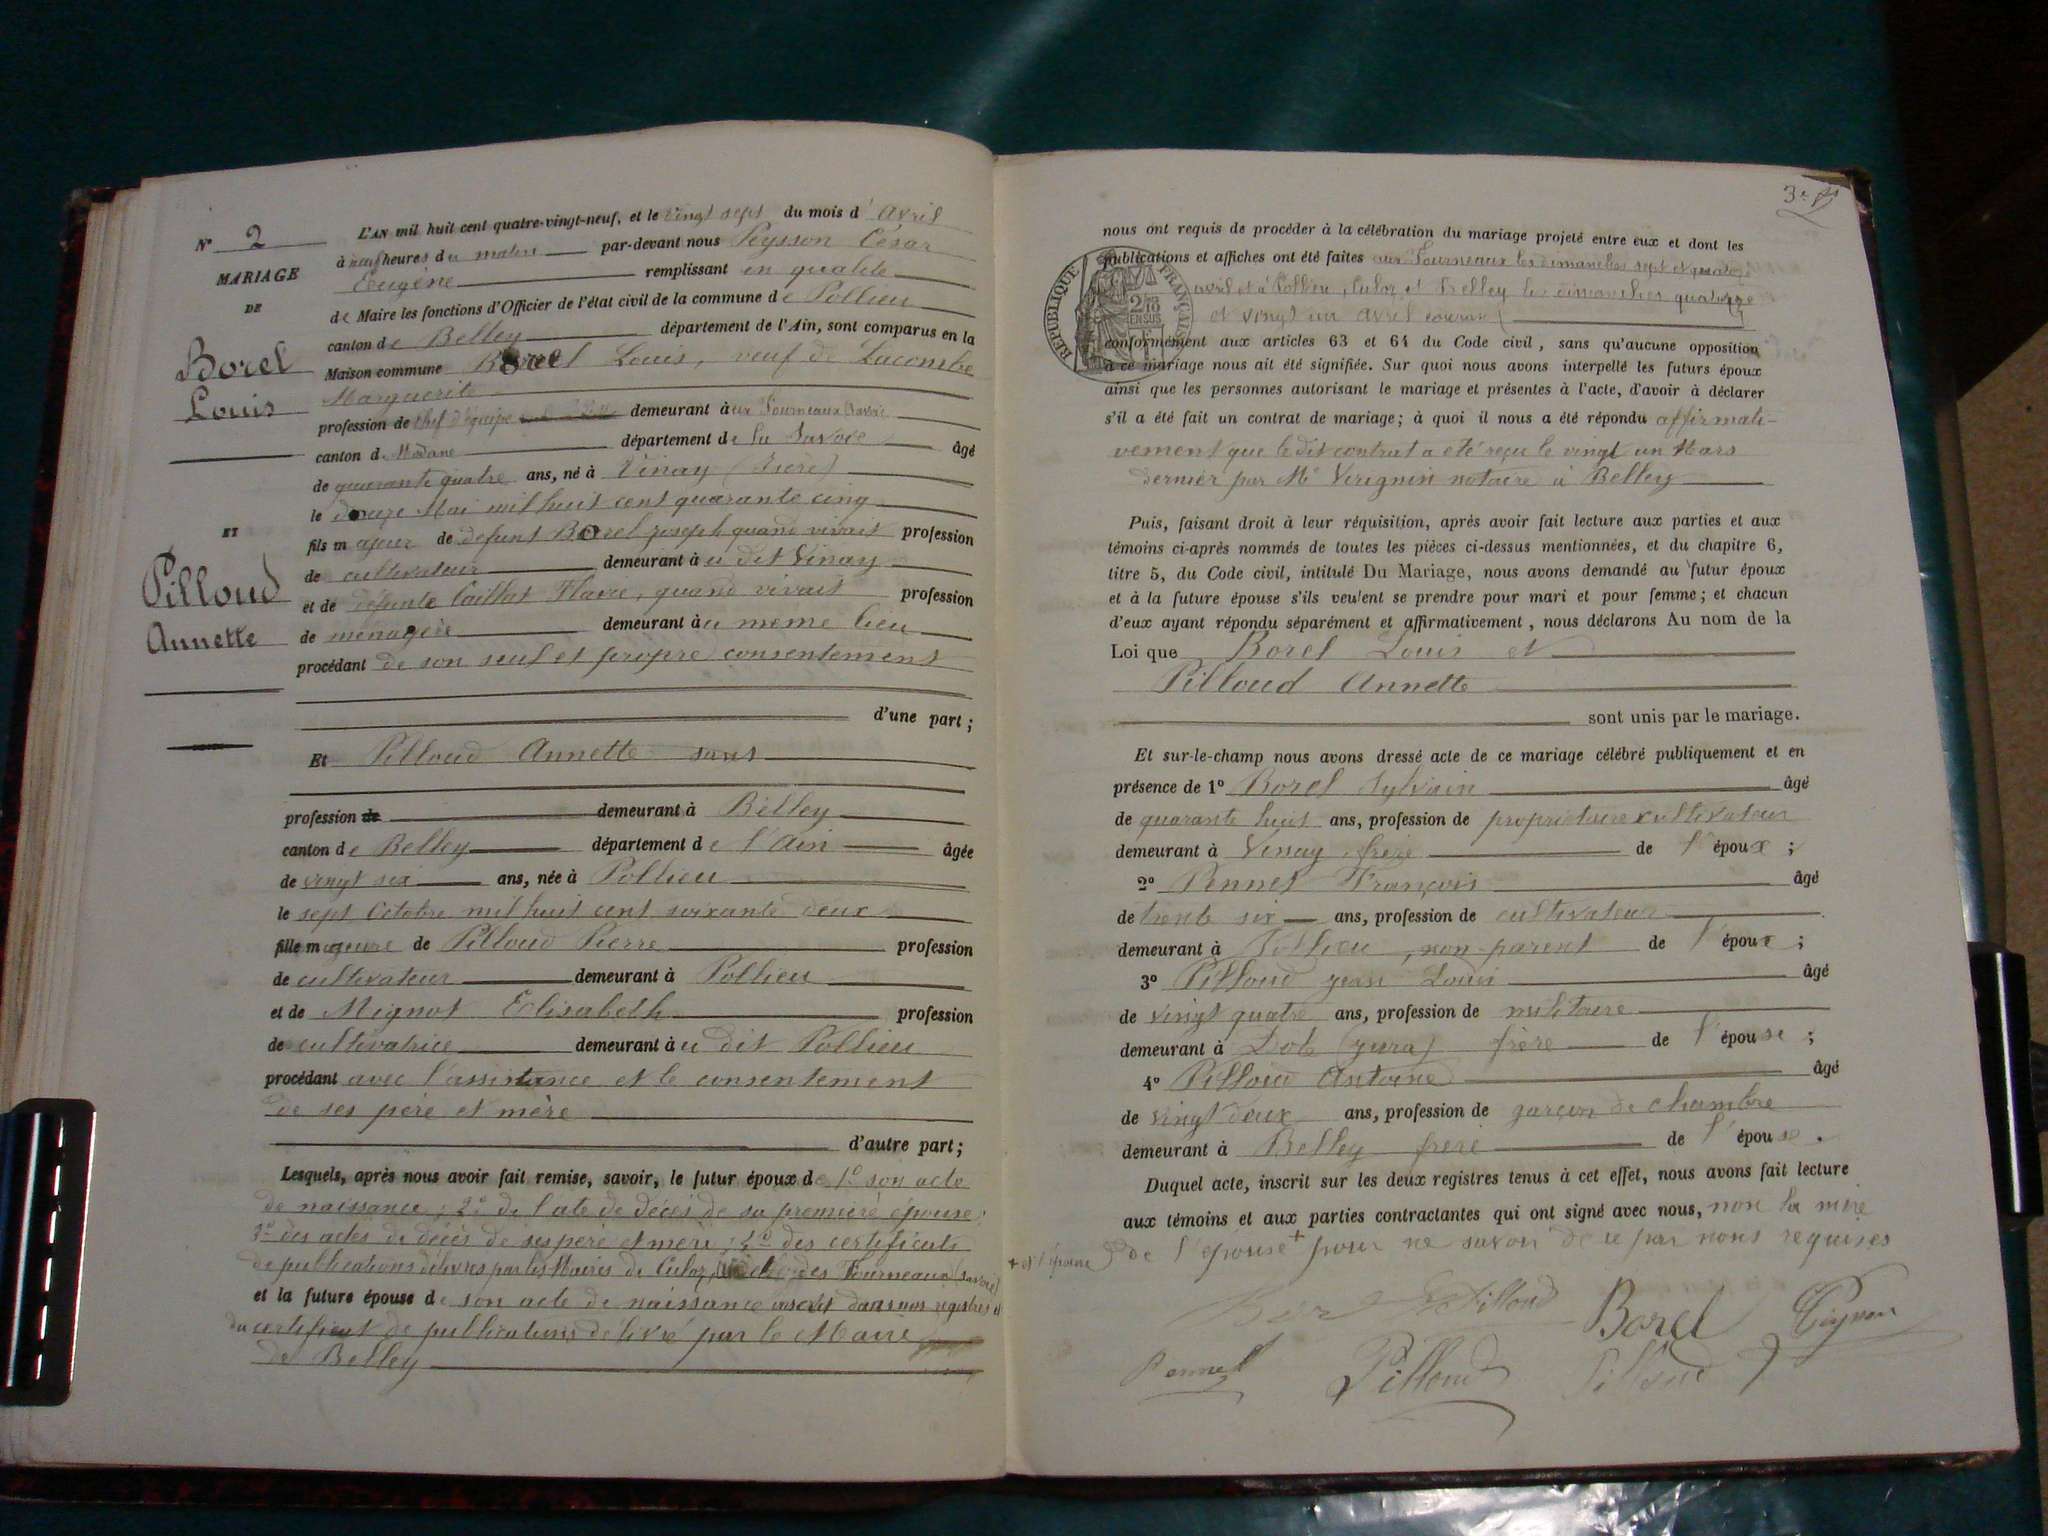 N° 2
MARIAGE
DE
Borel
Louis
ET
Pilloud
Annette
L'AN mil huit cent quatre-vingt-neuf, et le vingt sept du mois d'avril
à neuf heures du matin par-devant nous Peysson César
Eugène remplissant en qualité
de Maire les fonctions d'Officier de l'état civil de la commune de Pollieu
canton de Belley département de l'Ain, sont comparus en la
Maison commune Borel Louis, veuf de Lacombe
Marguerite
profession de chef d'équipe demeurant aux Fourneaux Savoie
canton de Modane département de la Savoie âgé
de quarante quatre ans, né à Vinay (Isère)
le douze Mai mil huit cent quarante cinq
fils majeur de defunt Borel joseph quand vivait profession
de cultivateur demeurant au dit Vinay
et de defunte Caillat Flavie, quand vivait profession
de ménagère demeurant au meme lieu
procédant de son seul et propre consentement
d'une part ;
Et Pilloud Annette sans
profession de demeurant à Belley
canton de Belley département de l'Ain âgée
de vingt six ans, née à Pollieu
le sept Octobre mil huit cent soixante deux
fille majeure de Pilloud Pierre profession
de cultivateur demeurant à Pollieu
et de Mignot Elisabeth profession
de cultivatrice demeurant au dit Pollieu
procédant avec l'assistance et le consentement
de ses père et mère
d'autre part ;
Lesquels, après nous avoir fait remise, savoir, le futur époux de 1° son acte
de naissance ; 2° de l'ate de décès de sa première épouse ;
3° des actes de décès de ses père et mère ; 4° des certificats
de publications délivrés par les Maires de Culoz, des Fourneaux (savoie)
et la future épouse de son acte de naissance inscrit dans nos registres et
du certificat de publications délivré par le Maire
de Belley
3e
RÉPUBLIQUE FRANÇAISE
nous ont requis de procéder à la célébration du mariage projeté entre eux et dont les
publications et affiches ont été faites aux Fourneaux les dimanches sept et quatorze
avril et à Pollieu, Culoz et Belley les dimanches quatorze
et vingt un avril courant
conformément aux articles 63 et 64 du Code civil, sans qu'aucune opposition
à ce mariage nous ait été signifiée. Sur quoi nous avons interpellé les futurs époux
ainsi que les personnes autorisant le mariage et présentes à l'acte, d'avoir à déclarer
s'il a été fait un contrat de mariage ; à quoi il nous a été répondu affirmati-
vement que le dit contrat a été reçu le vingt un Mars
dernier par Me Verignin notaire à Belley
Puis, faisant droit à leur réquisition, après avoir fait lecture aux parties et aux
témoins ci-après nommés de toutes les pièces ci-dessus mentionnées, et du chapitre 6,
titre 5, du Code civil, intitulé Du Mariage, nous avons demandé au futur époux
et à la future épouse s'ils veulent se prendre pour mari et pour femme ; et chacun
d'eux ayant répondu séparément et affirmativement, nous déclarons Au nom de la
Loi que Borel Louis et
Pilloud Annette
sont unis par le mariage.
Et sur-le-champ nous avons dressé acte de ce mariage célébré publiquement et en
présence de 1° Borel Sylvain âgé
de quarante huit ans, profession de propriétaire cultivateur
demeurant à Vinay frère de l'époux ;
2° Pennet François âgé
de trente six ans, profession de cultivateur
demeurant à Pollieu, non-parent de l'époux ;
3° Pilloud jean Louis âgé
de vingt quatre ans, profession de militaire
demeurant à Dole (jura) frère de l'épouse ;
4° Pilloud Antoine âgé
de vingt deux ans, profession de garçon de chambre
demeurant à Belley frère de l'épouse.
Duquel acte, inscrit sur les deux registres tenus à cet effet, nous avons fait lecture
aux témoins et aux parties contractantes qui ont signé avec nous, non la mère
+ et l'époux de l'épouse + pour ne savoir de ce par nous requises
Borel Pilloud Borel Peysson
Pennet Pilloud Pilloud